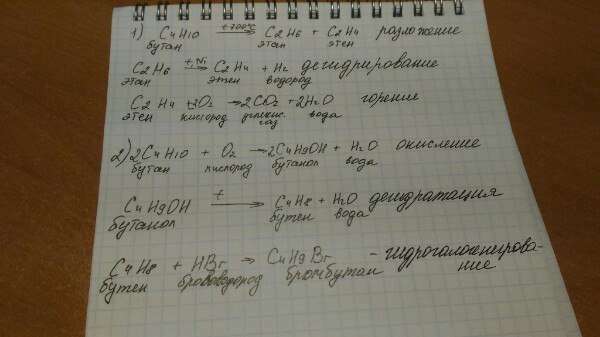 1) C4H10 t=700°C → C2H6 + C2H4 разложение
бутан этан этен
C2H6 t,Ni → C2H4 + H2 дегидрирование
этан этен водород
C2H4 + 3O2 → 2CO2 + 2H2O горение
этен кислород углекис. газ вода
2) 2C4H10 + O2 → 2C4H9OH + H2O окисление
бутан кислород бутанол вода
C4H9OH t → C4H8 + H2O дегидратация
бутанол бутен вода
C4H8 + HBr → C4H9Br - гидрогалогенирова-
бутен бромоводород бромбутан ние